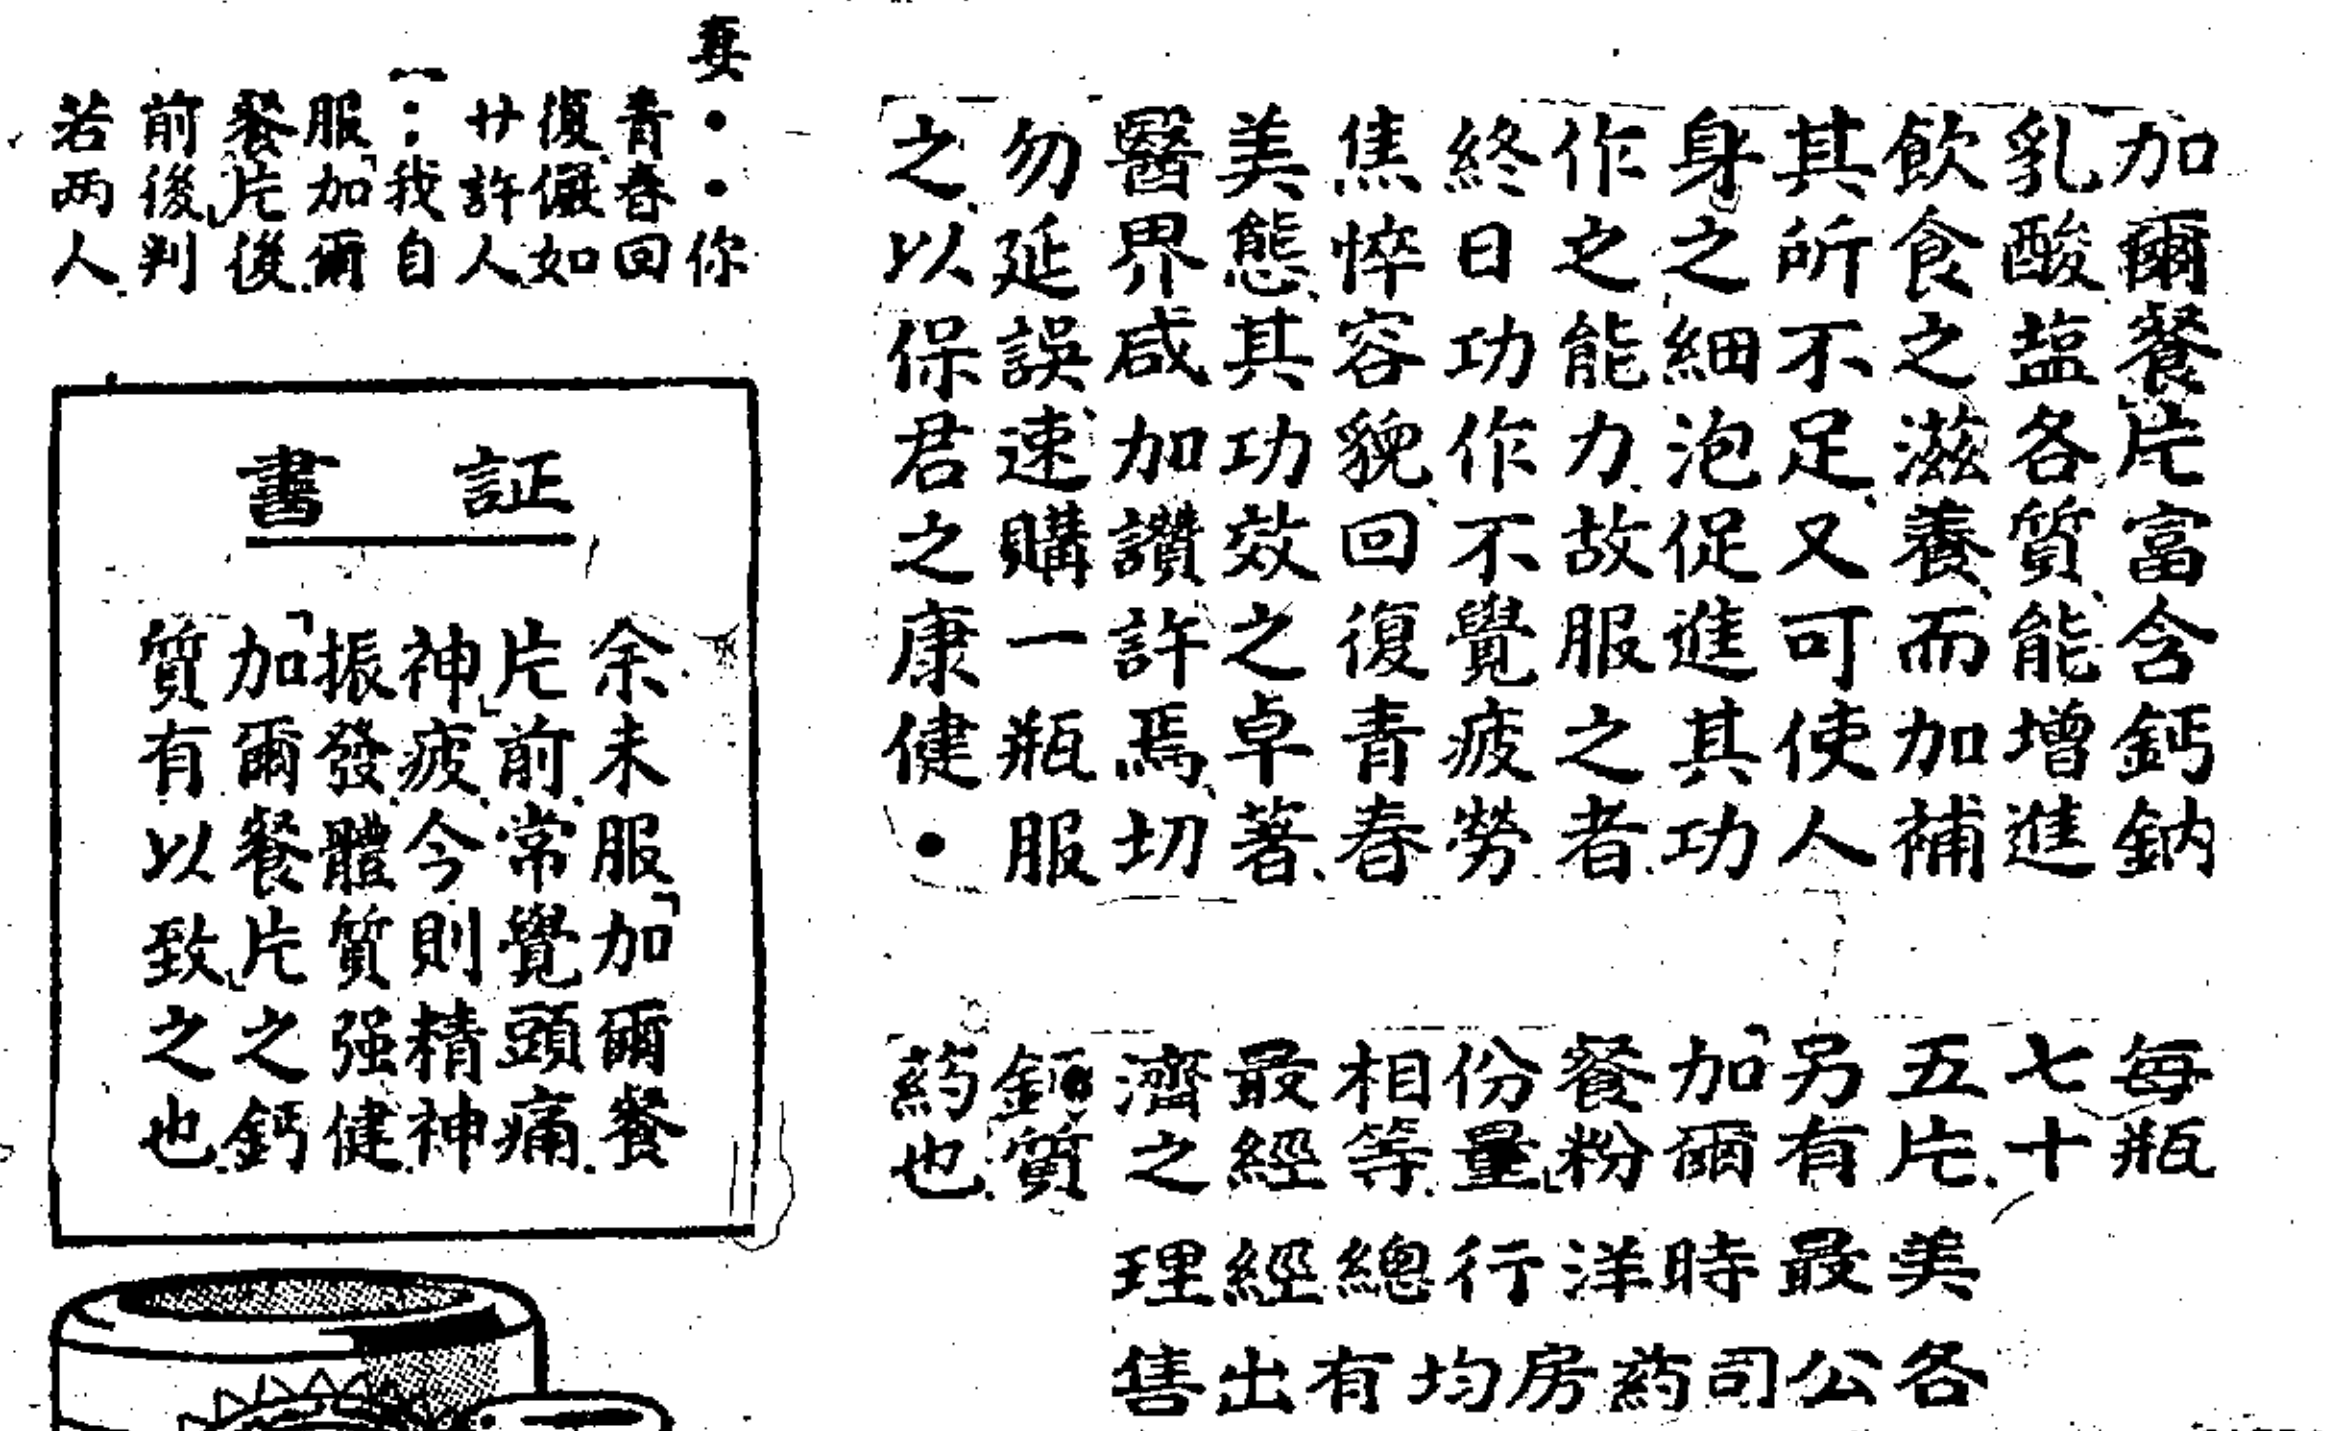 加爾餐片富含鈣鈉
乳酸塩各質、能增進
飲食之滋養、而加補
其所不足、又可使人
身之細泡促進其功
作之能力、故服之者
終日功作不覺疲勞
焦悴容貌、回復青春
美態、其功效之卓著、
醫界咸加讚許焉、切
勿延誤、速購一瓶服
之、以保君之康健•
每瓶
七十
五片、
另有
「加爾
餐粉」
份量
相等、
最經
濟之
鈣質
药也、
美最時洋行總經理
各公司药房均有出售
妻••你
青春回
復、儼如
廿許人
：我自
服「加爾
餐片」後
前後判
若两人、
証書
余未服「加爾餐
片」前、常覺頭痛、
神疲、今則精神
振發、體質强健、
「加爾餐片」之鈣
質有以致之也、